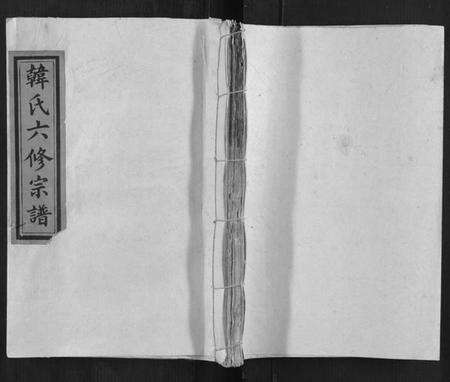 韓氏六修宗譜